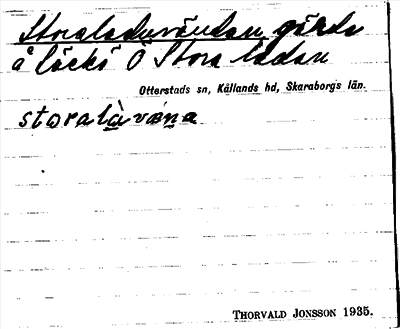 Storaladuvändan, gärde
å läckö Ö Stora ladan
Otterstads sn, Kållands hd, Skaraborgs län.
storalàväna
THORVALD JONSSON 1935.